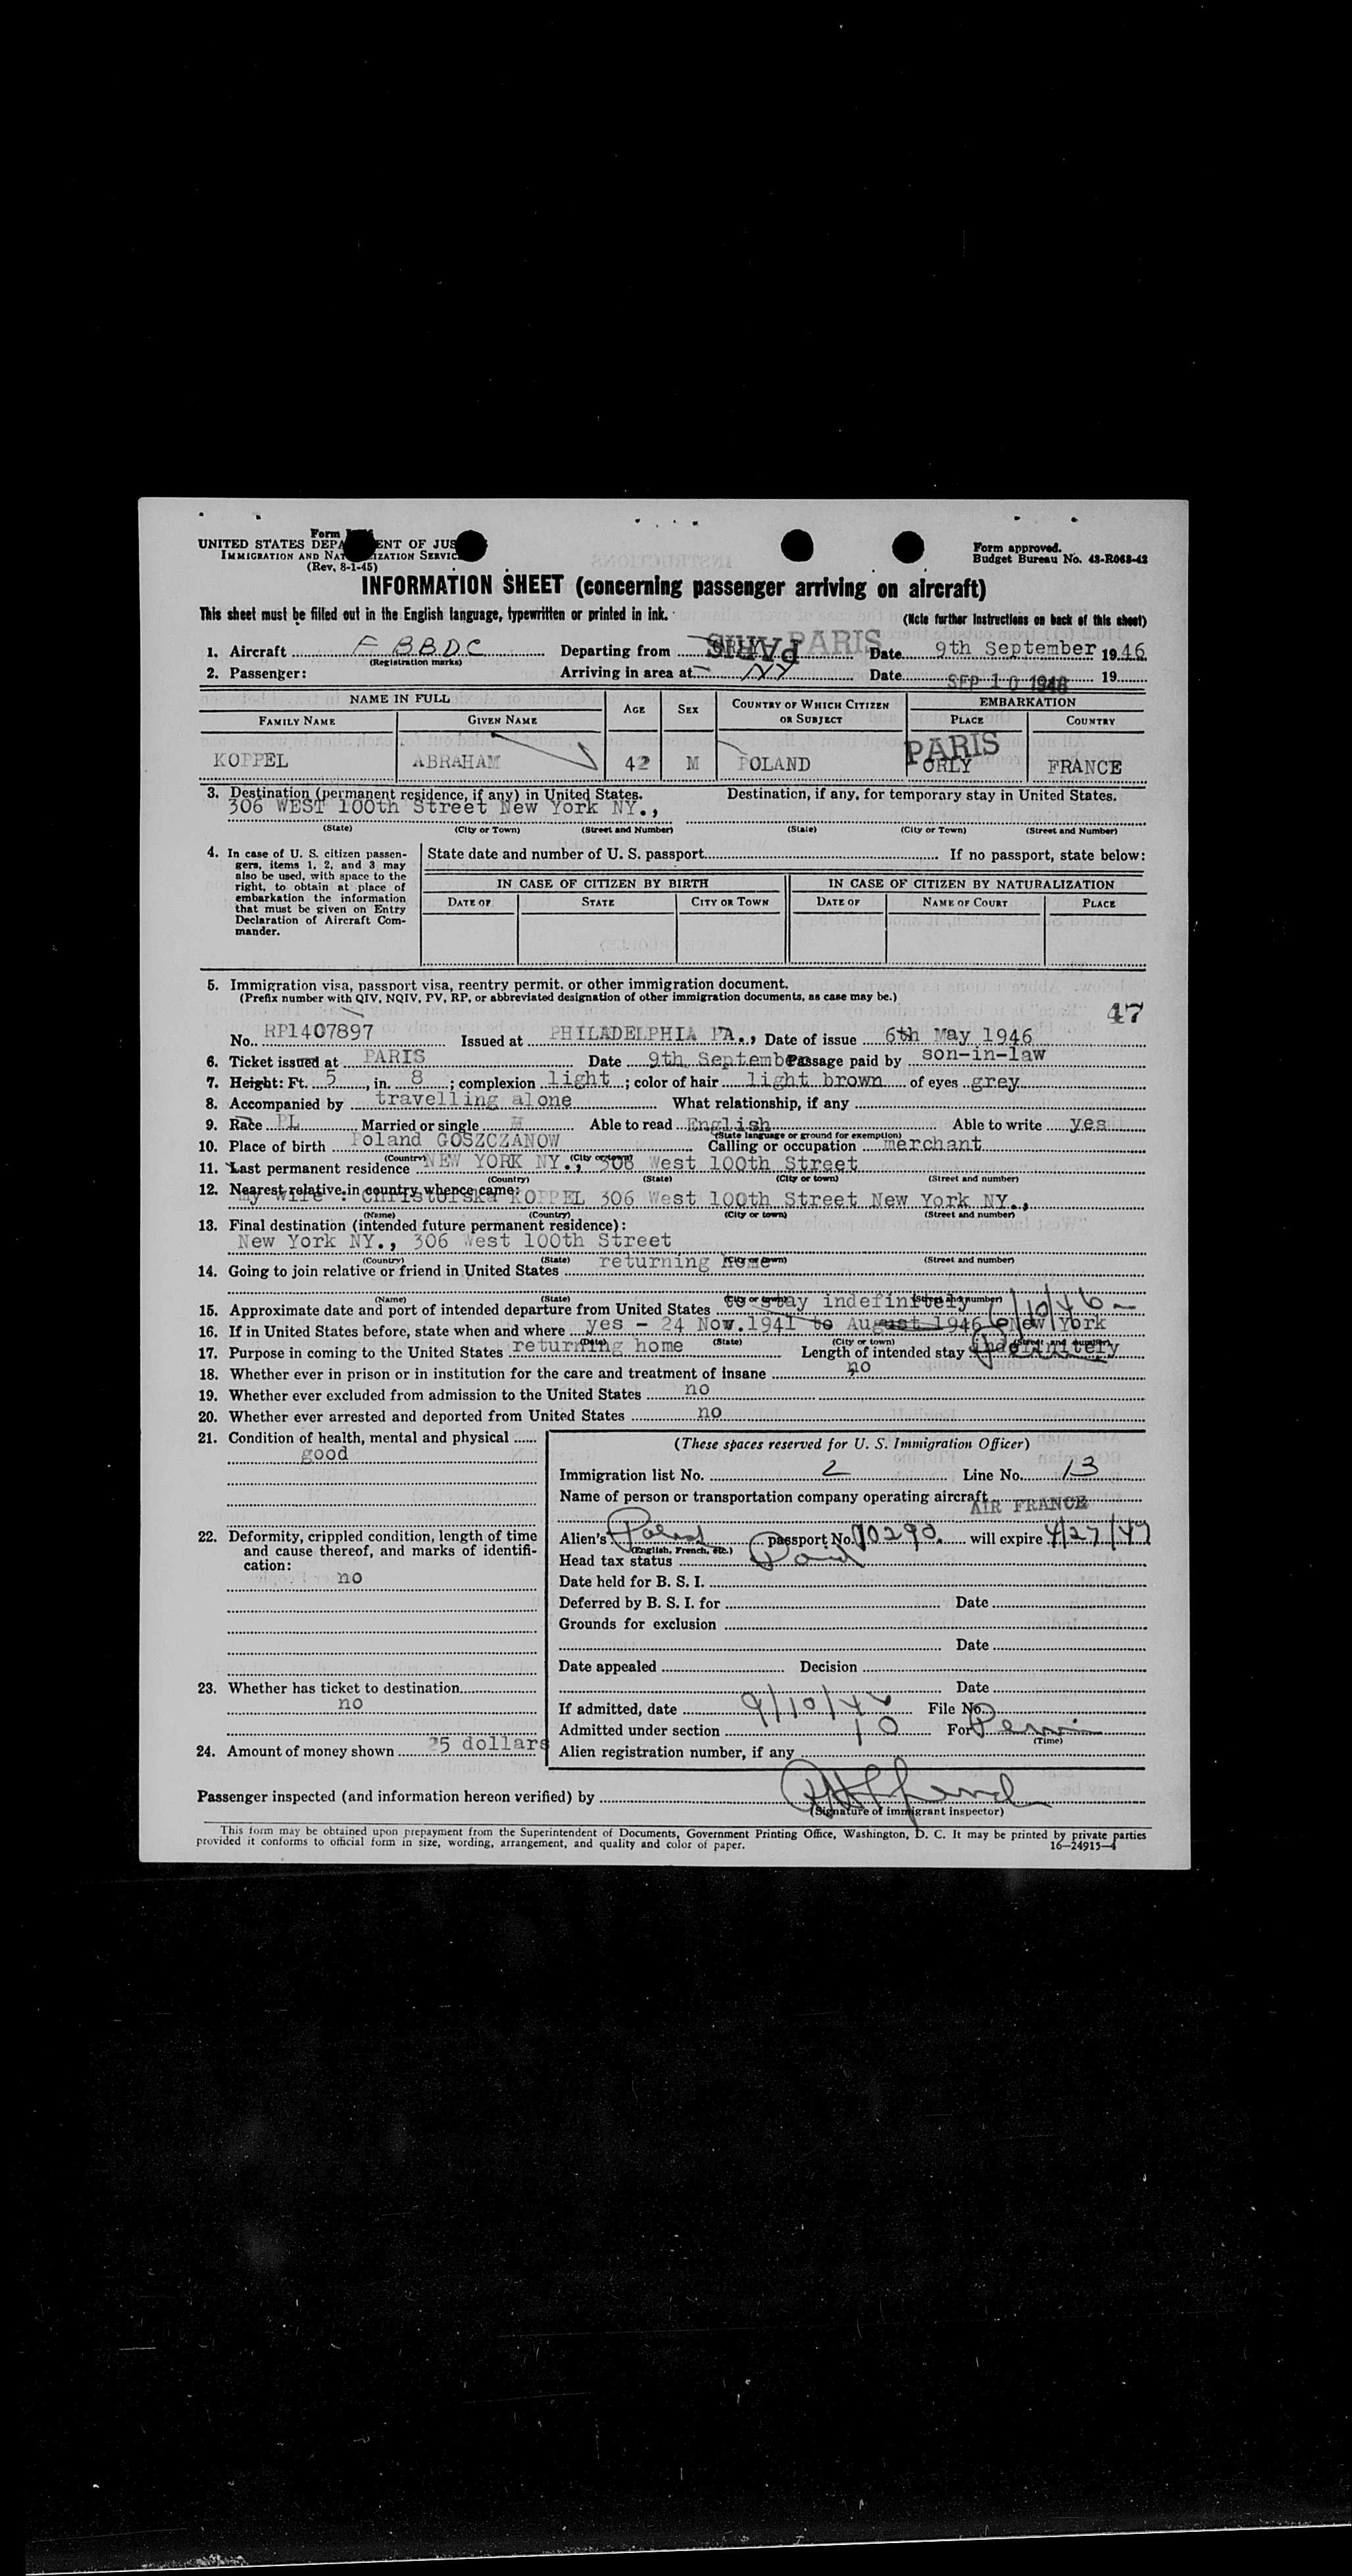 Form
UNITED STATES DEPA ENT OF JUS
IMMIGRATION AND NAT IZATION SERVIC
(Rev. 8-1-45)
Form approved.
Budget Bureau No. 43-R063-42
INFORMATION SHEET (concerning passenger arriving on aircraft)
This sheet must be filled out in the English language, typewritten or printed in ink.
(Note further Instructions on back of this sheet)
1. Aircraft F BBDC Departing from PARIS PARIS Date 9th September 1946
(Registration marks)
2. Passenger: Arriving in area at NY Date SEP 10 1946 19
NAME IN FULL AGE SEX COUNTRY OF WHICH CITIZEN OR SUBJECT EMBARKATION
FAMILY NAME GIVEN NAME PLACE COUNTRY
PARIS
KOPPEL ABRAHAM 42 M POLAND ORLY FRANCE
3. Destination (permanent residence, if any) in United States. Destination, if any, for temporary stay in United States.
306 WEST 100th Street New York NY.,
(State) (City or Town) (Street and Number) (State) (City or Town) (Street and Number)
4. In case of U. S. citizen passengers, items 1, 2, and 3 may also be used, with space to the right, to obtain at place of embarkation the information that must be given on Entry Declaration of Aircraft Commander.
State date and number of U. S. passport If no passport, state below:
IN CASE OF CITIZEN BY BIRTH IN CASE OF CITIZEN BY NATURALIZATION
DATE OF STATE CITY OR TOWN DATE OF NAME OF COURT PLACE
5. Immigration visa, passport visa, reentry permit, or other immigration document.
(Prefix number with QIV, NQIV, PV, RP, or abbreviated designation of other immigration documents, as case may be.)
47
No. RP1407897 Issued at PHILADELPHIA PA., Date of issue 6th May 1946
6. Ticket issued at PARIS Date 9th September Passage paid by son-in-law
7. Height: Ft. 5, in. 8; complexion light; color of hair light brown of eyes grey
8. Accompanied by travelling alone What relationship, if any
9. Race PL Married or single M Able to read English Able to write yes
(State language or ground for exemption)
10. Place of birth Poland GOSZCZANOW Calling or occupation merchant
(Country) (City or town)
11. Last permanent residence NEW YORK NY., 306 West 100th Street
(Country) (State) (City or town) (Street and number)
12. Nearest relative in country whence came:
my wife : KOPPEL 306 West 100th Street New York NY.,
(Name) (Country) (City or town) (Street and number)
13. Final destination (intended future permanent residence):
New York NY., 306 West 100th Street
(Country) (State) (City or town) (Street and number)
14. Going to join relative or friend in United States returning home
(Name) (State) (City or town) (Street and number)
15. Approximate date and port of intended departure from United States to stay indefinitely
16. If in United States before, state when and where yes - 24 Nov. 1941 to August 1946 New York
(Date) (State) (City or town) (Street and number)
17. Purpose in coming to the United States returning home Length of intended stay indefinitely
18. Whether ever in prison or in institution for the care and treatment of insane no
19. Whether ever excluded from admission to the United States no
20. Whether ever arrested and deported from United States no
21. Condition of health, mental and physical
good
(These spaces reserved for U. S. Immigration Officer)
Immigration list No. 2 Line No. 13
Name of person or transportation company operating aircraft AIR FRANCE
22. Deformity, crippled condition, length of time and cause thereof, and marks of identification:
no
Alien's Poland passport No. 10290. will expire 4/27/47
(English, French, etc.)
Head tax status Paid
Date held for B. S. I.
Deferred by B. S. I. for Date
Grounds for exclusion
Date
Date appealed Decision
Date
23. Whether has ticket to destination
no
If admitted, date 9/10/46 File No.
Admitted under section 10 For Perm
(Time)
24. Amount of money shown 25 dollars
Alien registration number, if any
Passenger inspected (and information hereon verified) by
(Signature of immigrant inspector)
This form may be obtained upon prepayment from the Superintendent of Documents, Government Printing Office, Washington, D. C. It may be printed by private parties
provided it conforms to official form in size, wording, arrangement, and quality and color of paper.
16—24915-4